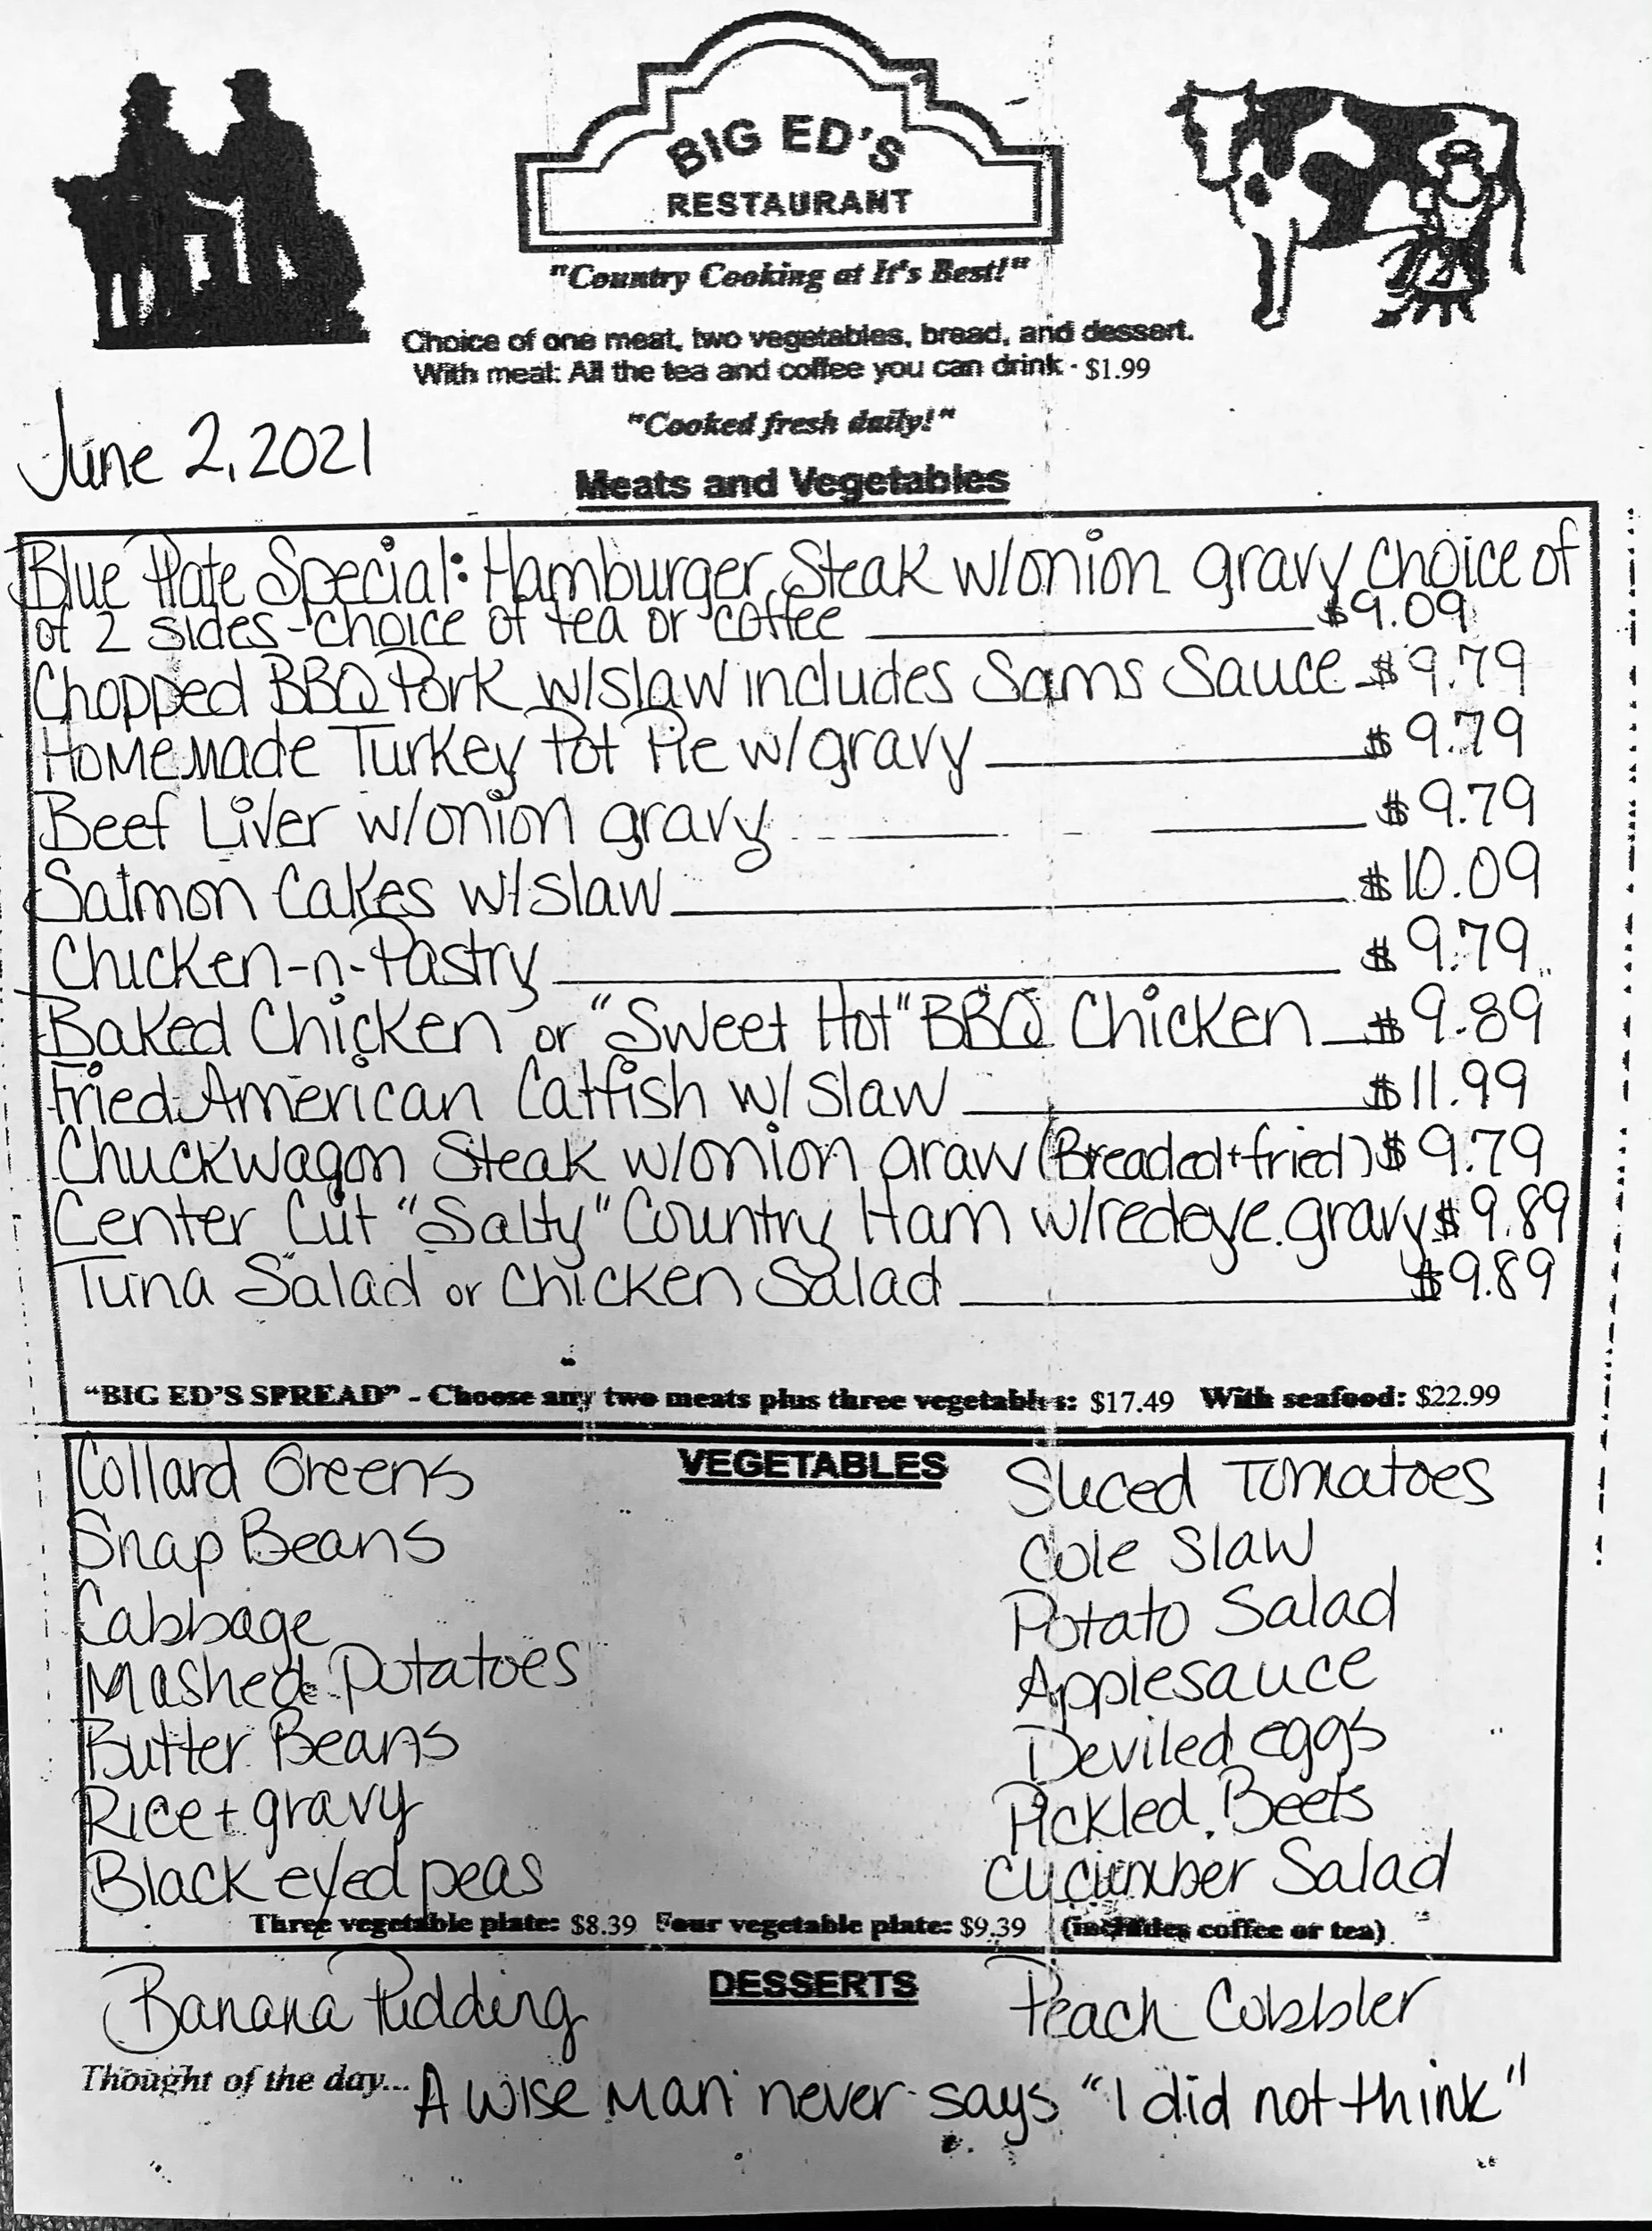 BIG ED'S
RESTAURANT
"Country Cooking at It's Best!"
Choice of one meat, two vegetables, bread, and dessert.
With meal: All the tea and coffee you can drink - $1.99
"Cooked fresh daily!"
June 2, 2021
Meats and Vegetables
Blue Plate Special: Hamburger Steak w/onion gravy choice of
of 2 sides - choice of tea or coffee $9.09
Chopped BBQ Pork w/slaw includes Sams Sauce $9.79
Homemade Turkey Pot Pie w/gravy $9.79
Beef Liver w/onion gravy $9.79
Salmon Cakes w/slaw $10.09
Chicken-n-Pastry $9.79
Baked Chicken or "Sweet Hot" BBQ Chicken $9.89
Fried American Catfish w/ slaw $11.99
Chuckwagon Steak w/onion gravy (Breaded + fried) $9.79
Center Cut "Salty" Country Ham w/redeye gravy $9.89
Tuna Salad or Chicken Salad $9.89
"BIG ED'S SPREAD" - Choose any two meats plus three vegetables: $17.49 With seafood: $22.99
VEGETABLES
Collard Greens
Snap Beans
Cabbage
Mashed Potatoes
Butter Beans
Rice + gravy
Black eyed peas
Sliced Tomatoes
Cole Slaw
Potato Salad
Applesauce
Deviled eggs
Pickled Beets
Cucumber Salad
Three vegetable plate: $8.39 Four vegetable plate: $9.39 (includes coffee or tea)
DESSERTS
Banana Pudding
Peach Cobbler
Thought of the day... A wise man never says "I did not think"